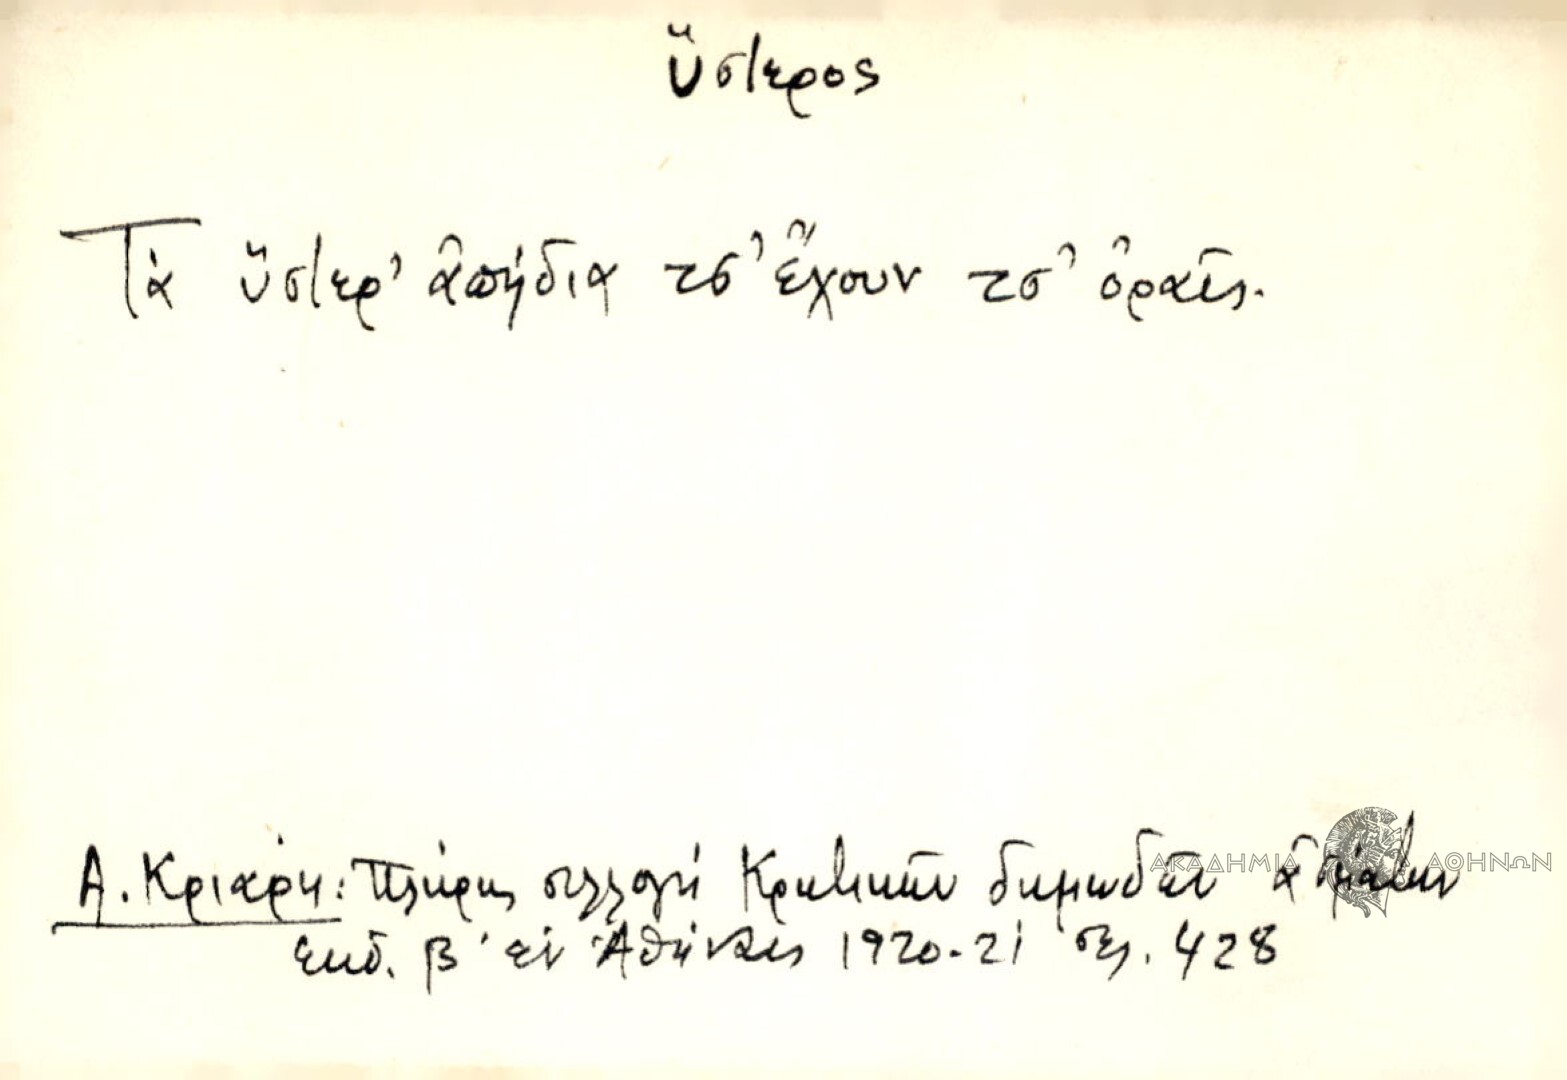 ὕστερος
Τὰ ὕστερ' ἀπήδια τσ' ἔχουν τσ' ὀραῖς.
Α. Κριάρη: Πλήρης συλλογή Κρητικῶν δημωδῶν ἀσμάτων
ἐκδ. β' ἐν Ἀθήναις 1920-21 σελ. 428
ΑΚΑΔΗΜΙΑ ΑΘΗΝΩΝ